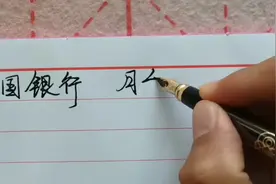 国银行 月